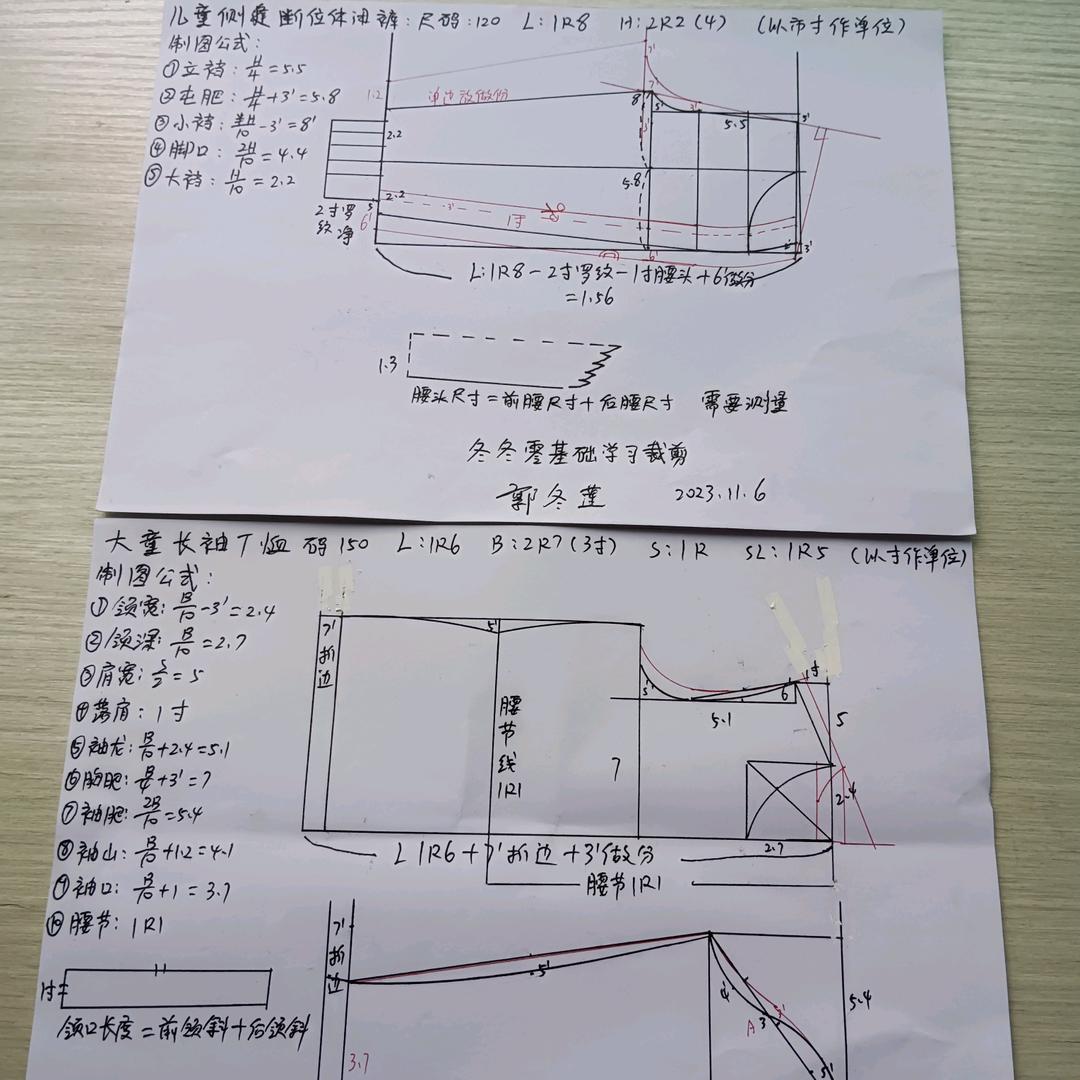 儿童侧缝断位休闲裤:尺码:120 L:1R8 H:2R2(4) (以市寸作单位)
制图公式:
①立裆:H/4=5.5
②屯肥:H/4+3'=5.8
-3'=8'
④脚口:2H/10=4.4
⑤大裆:H/10=2.2
1.2
单边放做份
7'
7'
8'
3'
3'
5'
5.5
2.2
5.8
2.2
5
3'
1寸
2寸罗
纹净
6'
6'
3'
L:1R8-2寸罗纹-1寸腰头+6'做分
=1.56
1.3
腰头尺寸=前腰尺寸+后腰尺寸 需要测量
冬冬零基础学习裁剪
郭冬莲 2023.11.6
大童长袖T恤 码150 L:1R6 B:2R7(3寸) S:1R SL:1R5 (以寸作单位)
制图公式:
①领宽:B/10-3'=2.4
②领深:B/10=2.7
③肩宽:S/2=5
④落肩:1寸
⑤袖龙:B/10+2.4=5.1
⑥胸肥:B/4+3'=7
⑦袖肥:2B/10=5.4
⑧袖山:B/10+1.2=4.1
⑨袖口:B/10+1=3.7
⑩腰节:1R1
7'折边
5'
腰节线1R1
3'
5.1
6'
1寸
5
7
2.4
2.7
L 1R6+7'折边+3'做分
腰节1R1
1寸
领口长度=前领斜+后领斜
7'折边
5'
4'
A
3
3'
5'
5.4
3.7